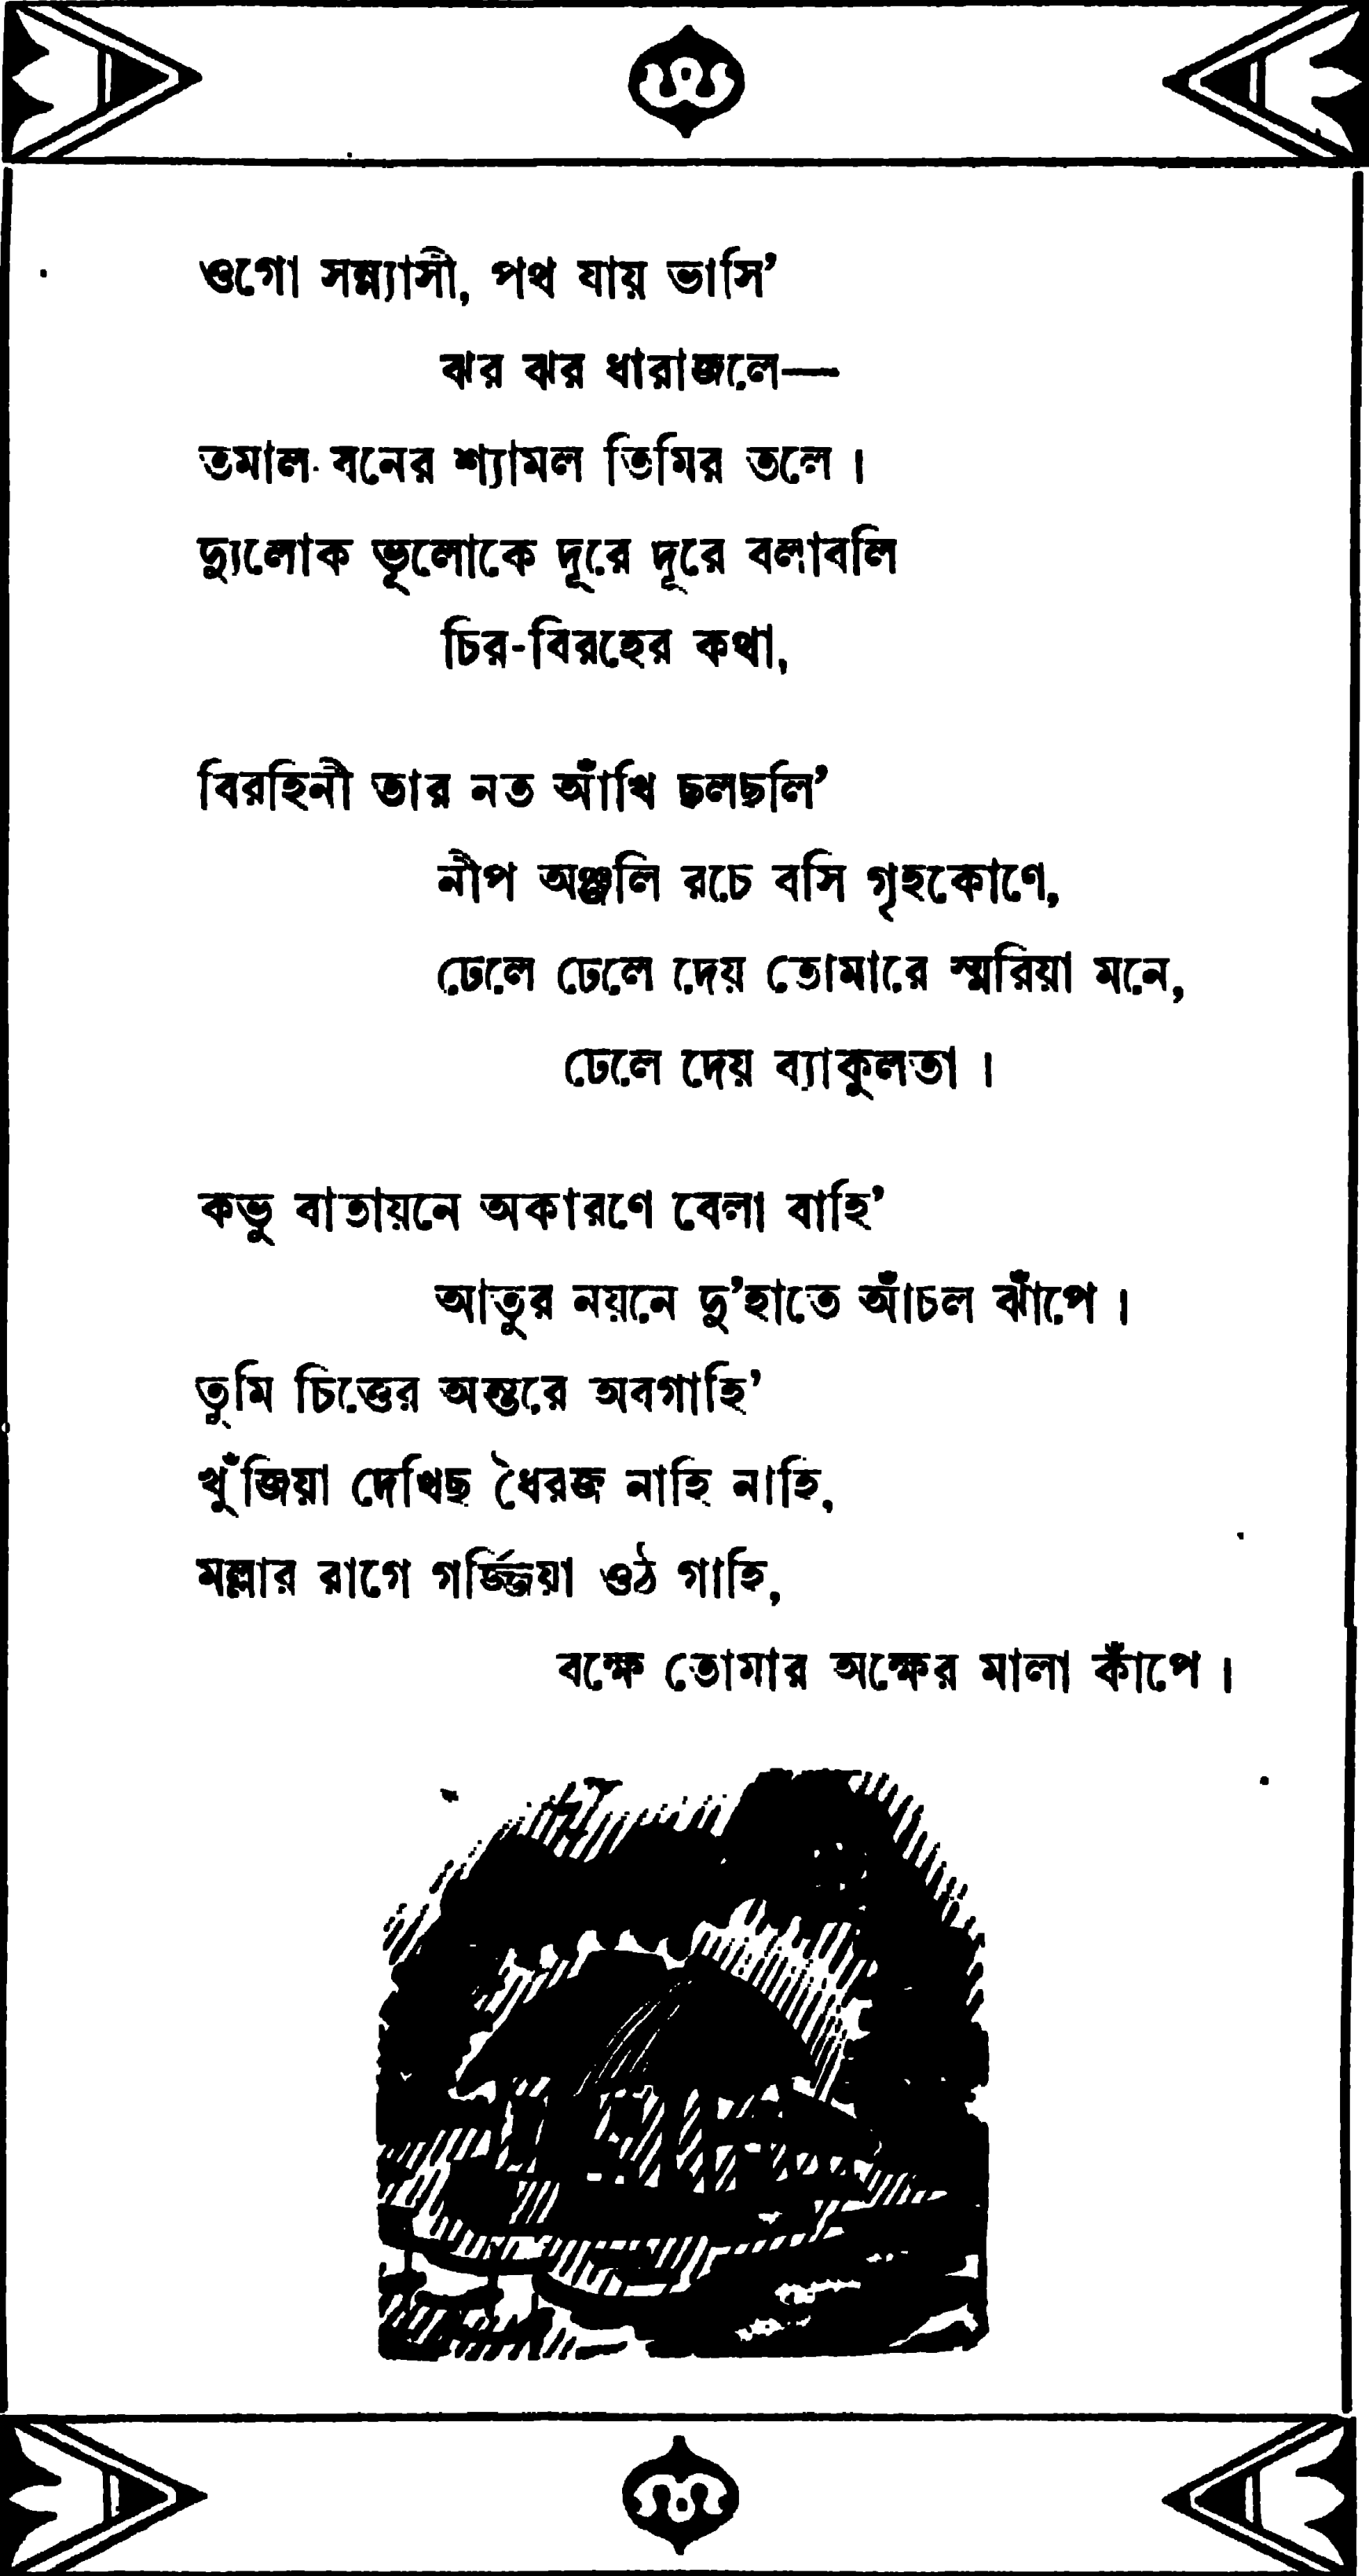 ওগো সন্ন্যাসী, পথ যায় ভাসি’
ঝর ঝর ধারাজলে—
তমাল বনের শ্যামল তিমির তলে ।
দ্যুলোক ভূলোকে দূরে দূরে বলাবলি
চির-বিরহের কথা,
বিরহিনী তার নত আঁখি ছলছলি’
নীপ অঞ্জলি রচে বসি গৃহকোণে,
ঢেলে ঢেলে দেয় তোমারে স্মরিয়া মনে,
ঢেলে দেয় ব্যাকুলতা ।
কভু বাতায়নে অকারণে বেলা বাহি’
আতুর নয়নে দু’হাতে আঁচল ঝাঁপে ।
তুমি চিত্তের অন্তরে অবগাহি’
খুঁজিয়া দেখিছ ধৈরজ নাহি নাহি,
মল্লার রাগে গর্জ্জিয়া ওঠ গাহি,
বক্ষে তোমার অক্ষের মালা কাঁপে ।